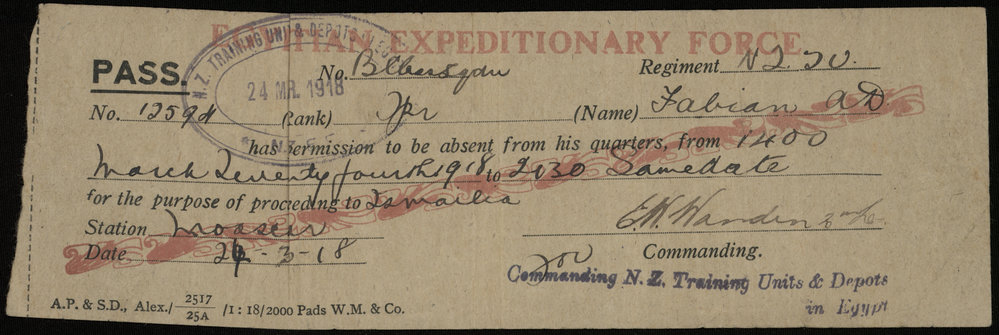 EGYPTIAN EXPEDITIONARY FORCE
N.Z. TRAINING UNITS & DEPOTS
24 MR. 1918
PASS.
No. B Regiment N.Z.T.U.
No. 13594 (Rank) Tpr (Name) Fabian A D
has permission to be absent from his quarters, from 1400
March Twenty fourth 1918 to 2030 Same date
for the purpose of proceding to Ismailia
Station Moascar E.W.
Date 24-3-18 for Commanding.
Commanding N.Z. Training Units & Depots
in Egypt
A.P. & S.D., Alex./2517/25A/1:18/2000 Pads W.M. & Co.